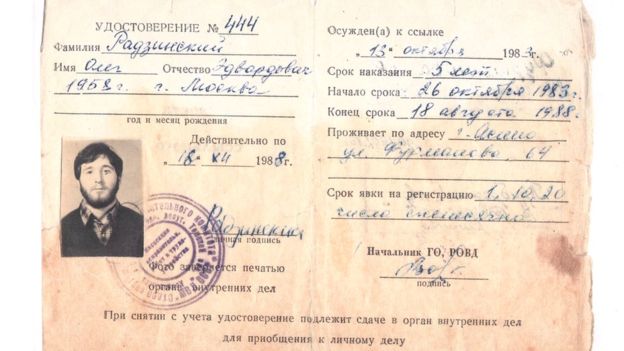 УДОСТОВЕРЕНИЕ № 444
Фамилия Радзинский
Имя Олег Отчество Эдвардович
1958 г. г. Москва
год и месяц рождения
Действительно по
"18" XII 1988 г.
Радзинский
личная подпись
Фото заверяется печатью
органа внутренних дел
Осужден(а) к ссылке
"13" октября 1983 г.
Срок наказания 5 лет
Начало срока 26 октября 1983 г.
Конец срока 18 августа 1988.
Проживает по адресу г. Асино
ул. Фурманова, 64
Срок явки на регистрацию 1, 10, 20
число ежемесячно
Начальник ГО, РОВД
подпись
При снятии с учета удостоверение подлежит сдаче в орган внутренних дел
для приобщения к личному делу